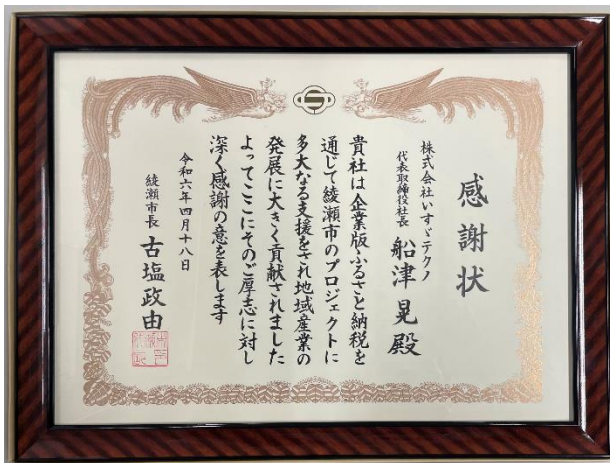 感謝状
株式会社いすゞテクノ
代表取締役社長 船津 晃 殿
貴社は企業版ふるさと納税を
通じて綾瀬市のプロジェクトに
多大なる支援をされ地域産業の
発展に大きく貢献されました
よってここにそのご厚志に対し
深く感謝の意を表します
令和六年四月十八日
綾瀬市長 古塩政由